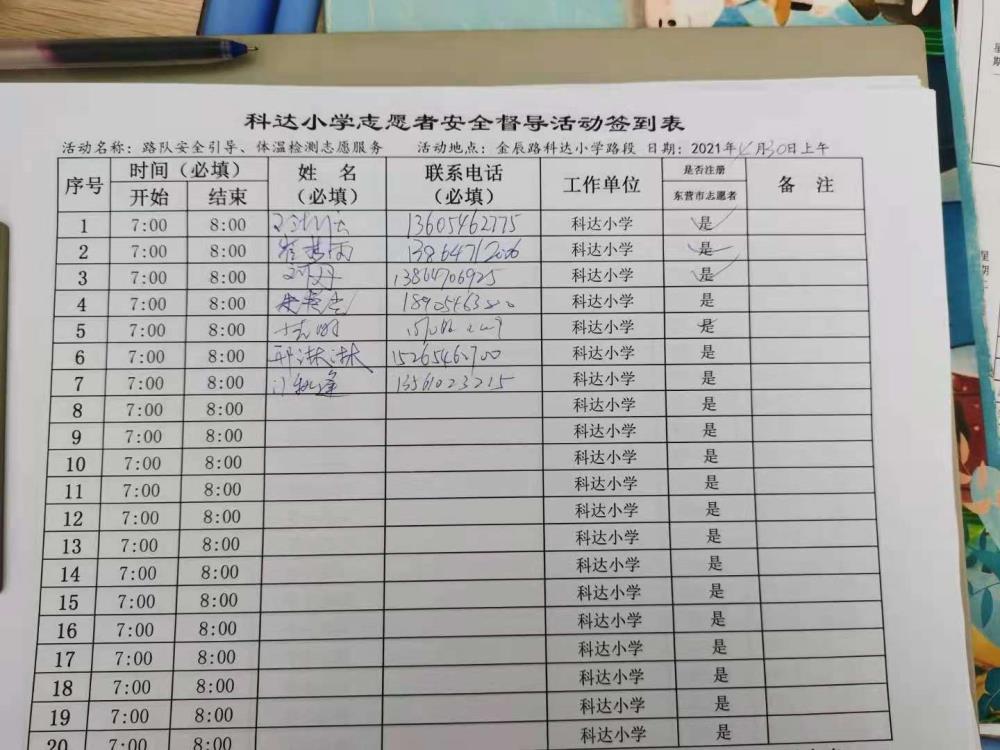 科达小学志愿者安全督导活动签到表
活动名称：路队安全引导、体温检测志愿服务 活动地点：金辰路科达小学路段 日期：2021年4月30日上午
序号 时间（必填） 姓 名（必填） 联系电话（必填） 工作单位 是否注册东营市志愿者 备 注
开始 结束
1 7:00 8:00 13605462775 科达小学 是
2 7:00 8:00 科达小学 是
3 7:00 8:00 刘丹 13864706925 科达小学 是
4 7:00 8:00 科达小学 是
5 7:00 8:00 科达小学 是
6 7:00 8:00 邢淋淋 科达小学 是
7 7:00 8:00 13561023215 科达小学 是
8 7:00 8:00 科达小学 是
9 7:00 8:00 科达小学 是
10 7:00 8:00 科达小学 是
11 7:00 8:00 科达小学 是
12 7:00 8:00 科达小学 是
13 7:00 8:00 科达小学 是
14 7:00 8:00 科达小学 是
15 7:00 8:00 科达小学 是
16 7:00 8:00 科达小学 是
17 7:00 8:00 科达小学 是
18 7:00 8:00 科达小学 是
19 7:00 8:00 科达小学 是
20 7:00 8:00 科达小学 是